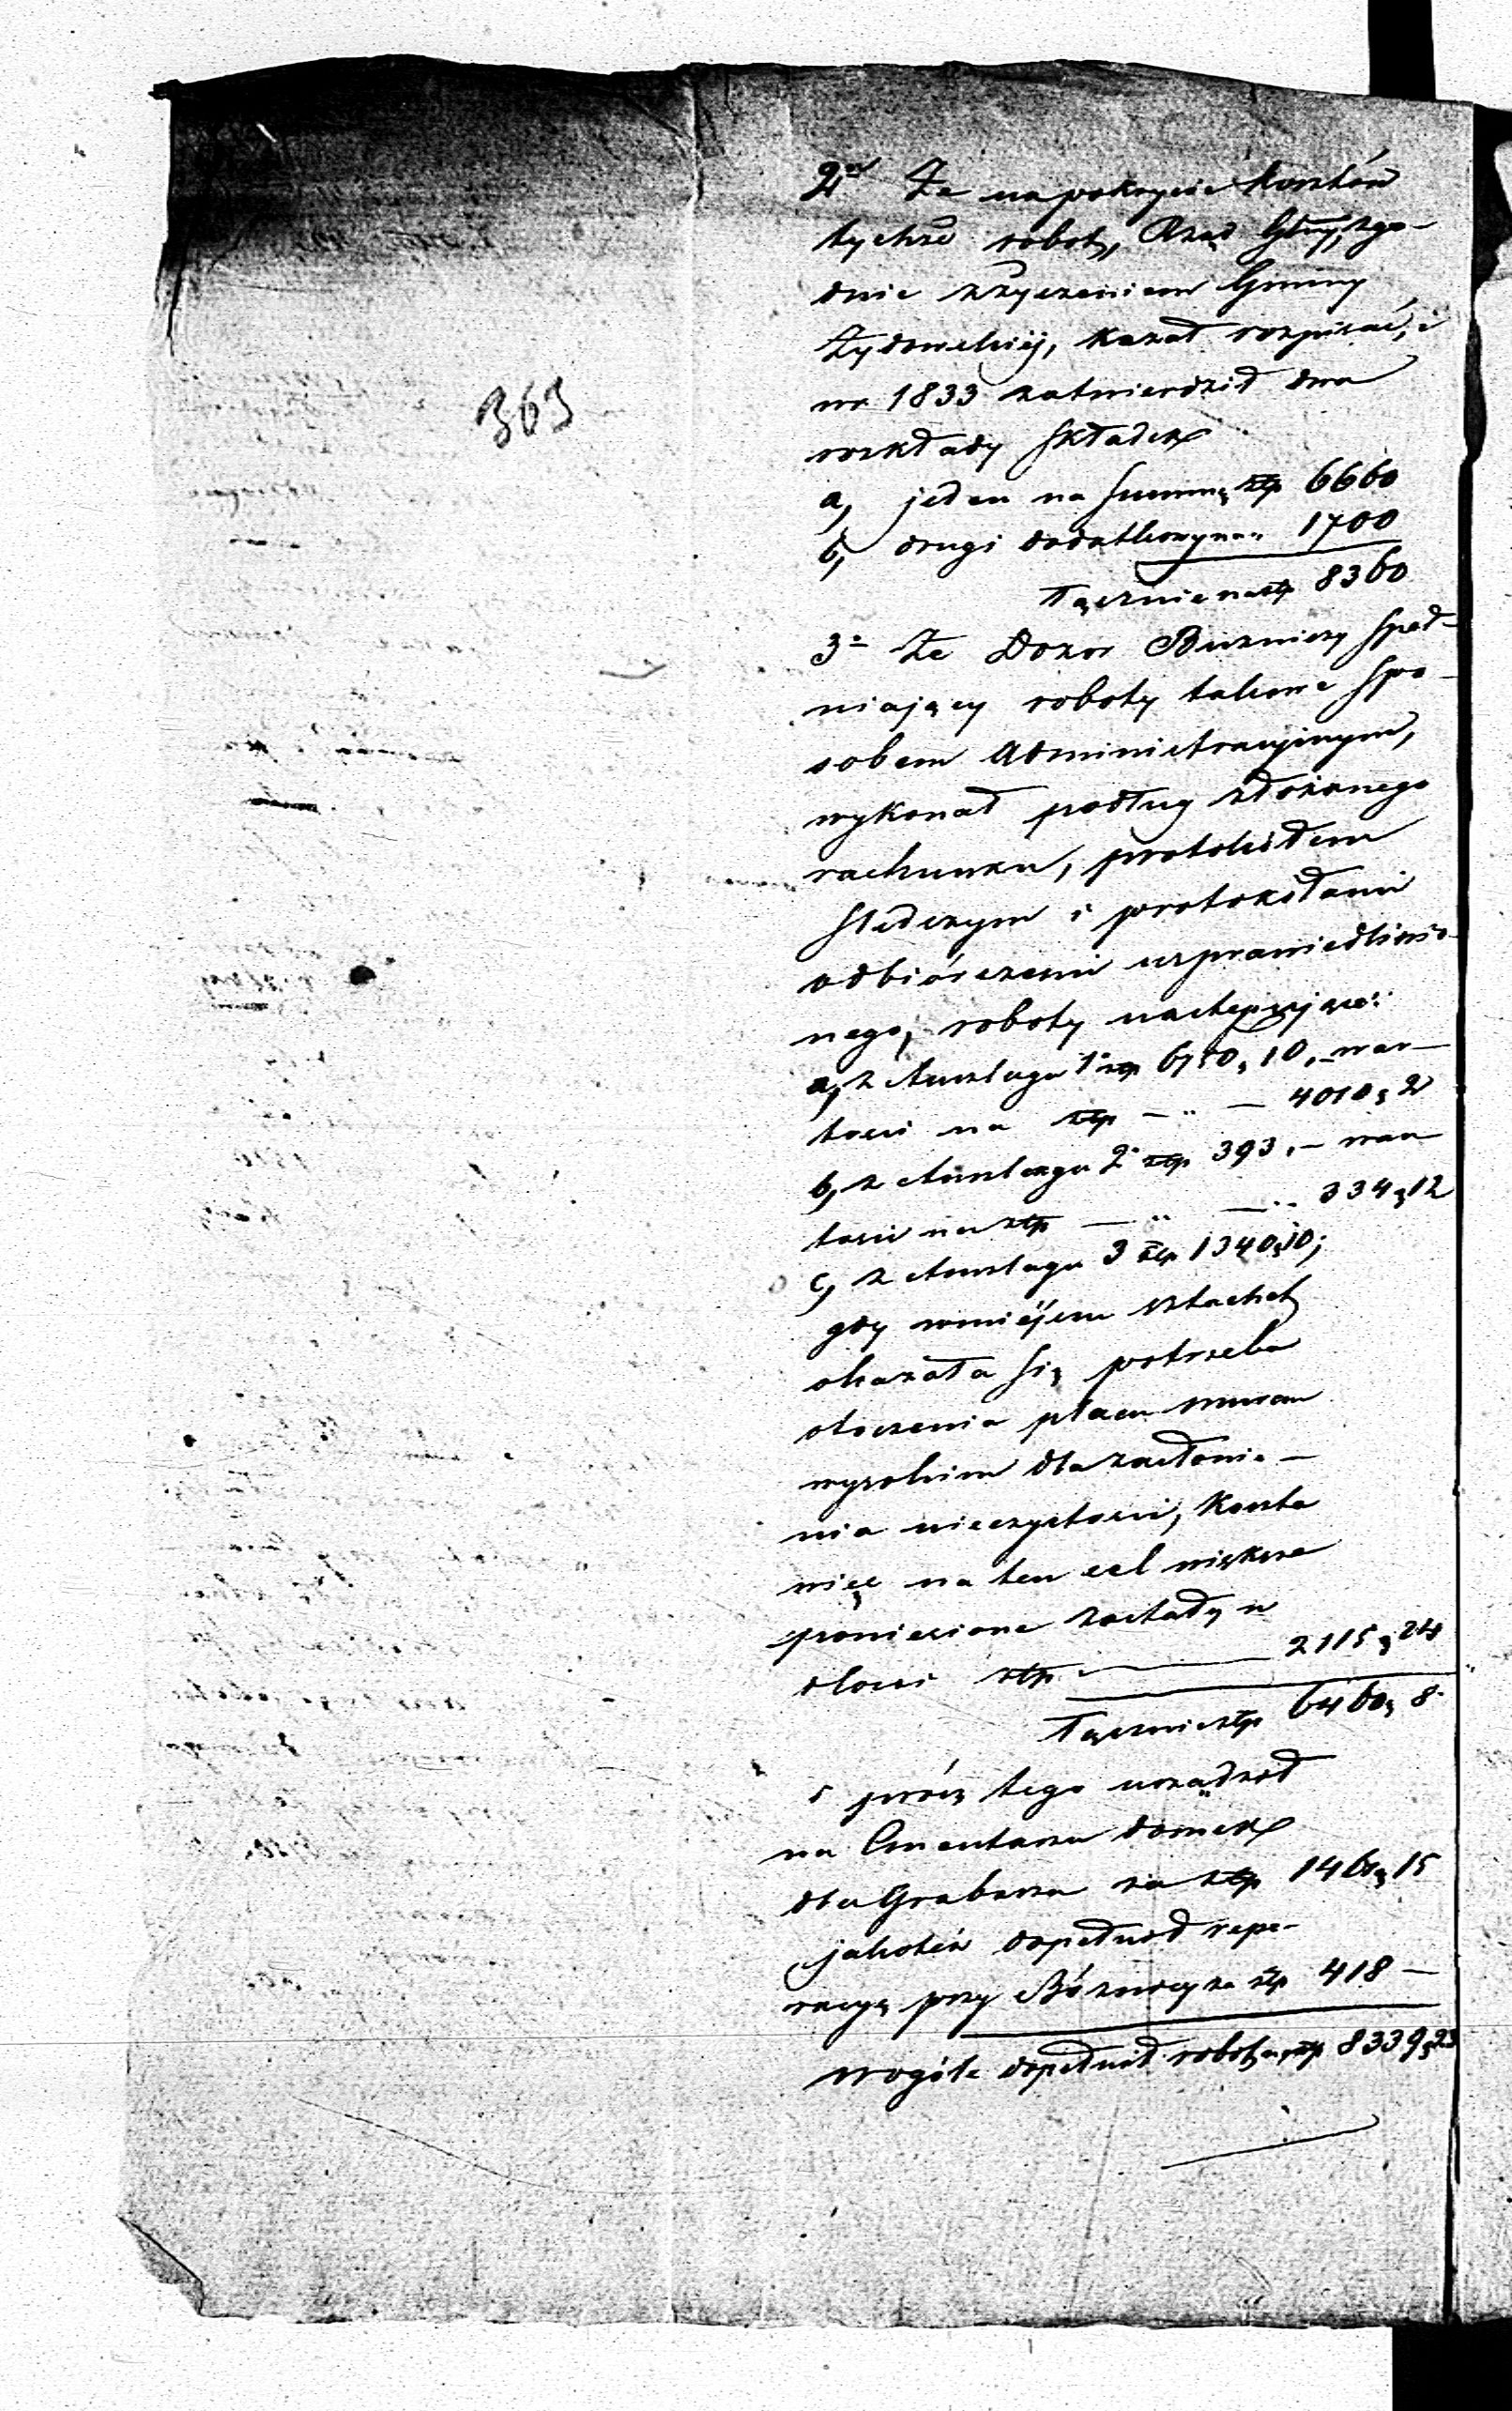 363
2º Że na pokrycie kosztów
tychże robót, Rząd Gbny, zgo-
dnie z życzeniem Gminy
Żydowskiéj, kazał rozpisać, i
w r. 1833 zatwierdził dwa
rozkłady składek
a, jeden na Summę złp 6660
b, drugi dodatkowy na „ 1700
łącznie na złp 8360
3º Że Dozor Bużniczy speł-
niający roboty takowe spo-
sobem administracyjnym,
wykonał podług złożonego
rachunku, protokółem
śledczym i protokółami
odbiórczemi usprawiedliwio-
nego, roboty następujące:
a, z Anszlagu 1º złp 6750, 10, war-
tości na złp — „ — 4010, 2
b, z Anszlagu 2º złp 393, — war
tości na złp — „ — „ 334, 12
c, z Anszlagu 3 złp 1340, 10;
gdy w miéjscu sztachet
okazała się potrzeba
otoczenia placu murem
wysokim dla zasłonie-
nia nieczystości, koszta
więc na ten cel większe
poniesione zostały w
ilości złp — 2115, 24
łącznie złp 6460, 8
i prócz tego urządził
na Cmentarzu domek
dla Grabarza za złp 1461, 15
jakoteż dopełnił repe-
racyę przy Bóżnicy za złp 418 —
wogóle dopełnił robot na złp 8339, 23